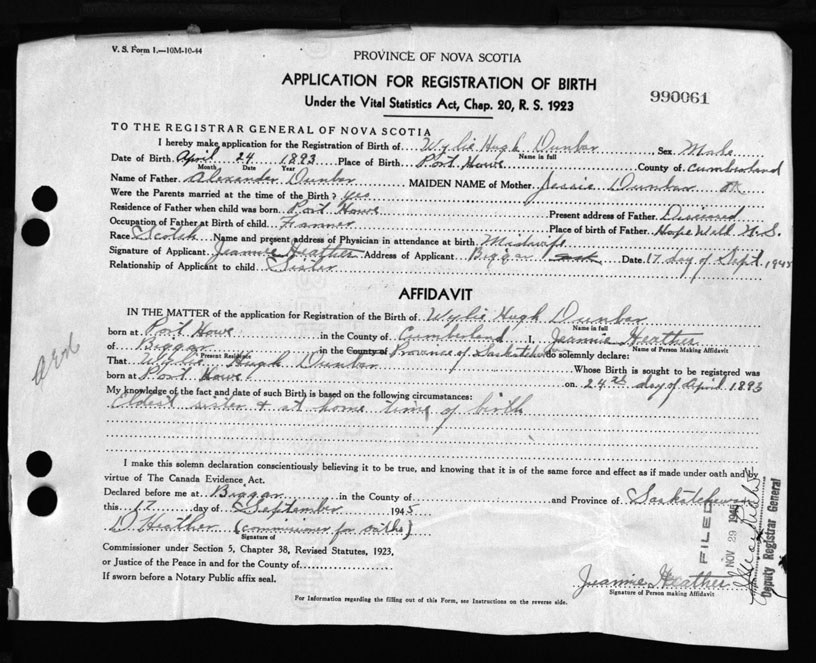 V. S. Form 1.—10M-10-44
PROVINCE OF NOVA SCOTIA
APPLICATION FOR REGISTRATION OF BIRTH
990061
Under the Vital Statistics Act, Chap. 20, R. S. 1923
TO THE REGISTRAR GENERAL OF NOVA SCOTIA
I hereby make application for the Registration of Birth of Wylie Hugh Dunbar Sex Male
Name in full
Date of Birth April 24 1893 Place of Birth Port Howe County of Cumberland
Month Date Year
Name of Father Alexander Dunbar MAIDEN NAME of Mother Jessie Dunbar OK
Were the Parents married at the time of the Birth? yes
Residence of Father when child was born Port Howe Present address of Father Diseased
Occupation of Father at Birth of child Farmer Place of birth of Father Hope Well N.S.
Race Scotch Name and present address of Physician in attendance at birth Midwife
Signature of Applicant Jeannie Heather Address of Applicant Biggar Sask Date 17 day of Sept. 1945
Relationship of Applicant to child Sister
AFFIDAVIT
IN THE MATTER of the application for Registration of the Birth of Wylie Hugh Dunbar
Name in full
born at Port Howe in the County of Cumberland I, Jeannie Heather
Name of Person Making Affidavit
of Biggar in the County of Province of Saskatchewan do solemnly declare:
Present Residence
That Wylie Hugh Dunbar Whose Birth is sought to be registered was
born at Port Howe on 24th day of April 1893
My knowledge of the fact and date of such Birth is based on the following circumstances:
Eldest sister & at home time of birth
I make this solemn declaration conscientiously believing it to be true, and knowing that it is of the same force and effect as if made under oath and by
virtue of The Canada Evidence Act.
Declared before me at Biggar in the County of and Province of Saskatchewan
this 17 day of September 1945
D Heather (commissioner for oaths)
Signature of
Commissioner under Section 5, Chapter 38, Revised Statutes, 1923,
or Justice of the Peace in and for the County of
If sworn before a Notary Public affix seal.
Jeannie Heather
Signature of Person making Affidavit
For Information regarding the filling out of this Form, see Instructions on the reverse side.
FILED
NOV 29 1945
Deputy Registrar General